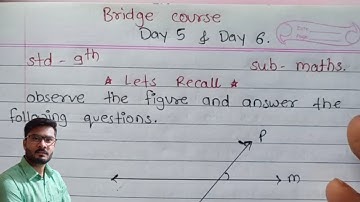 Bridge course
Day 5 & Day 6.
std - 9th
sub - maths.
★ Lets Recall ★
observe the figure and answer the
following questions.
P
m